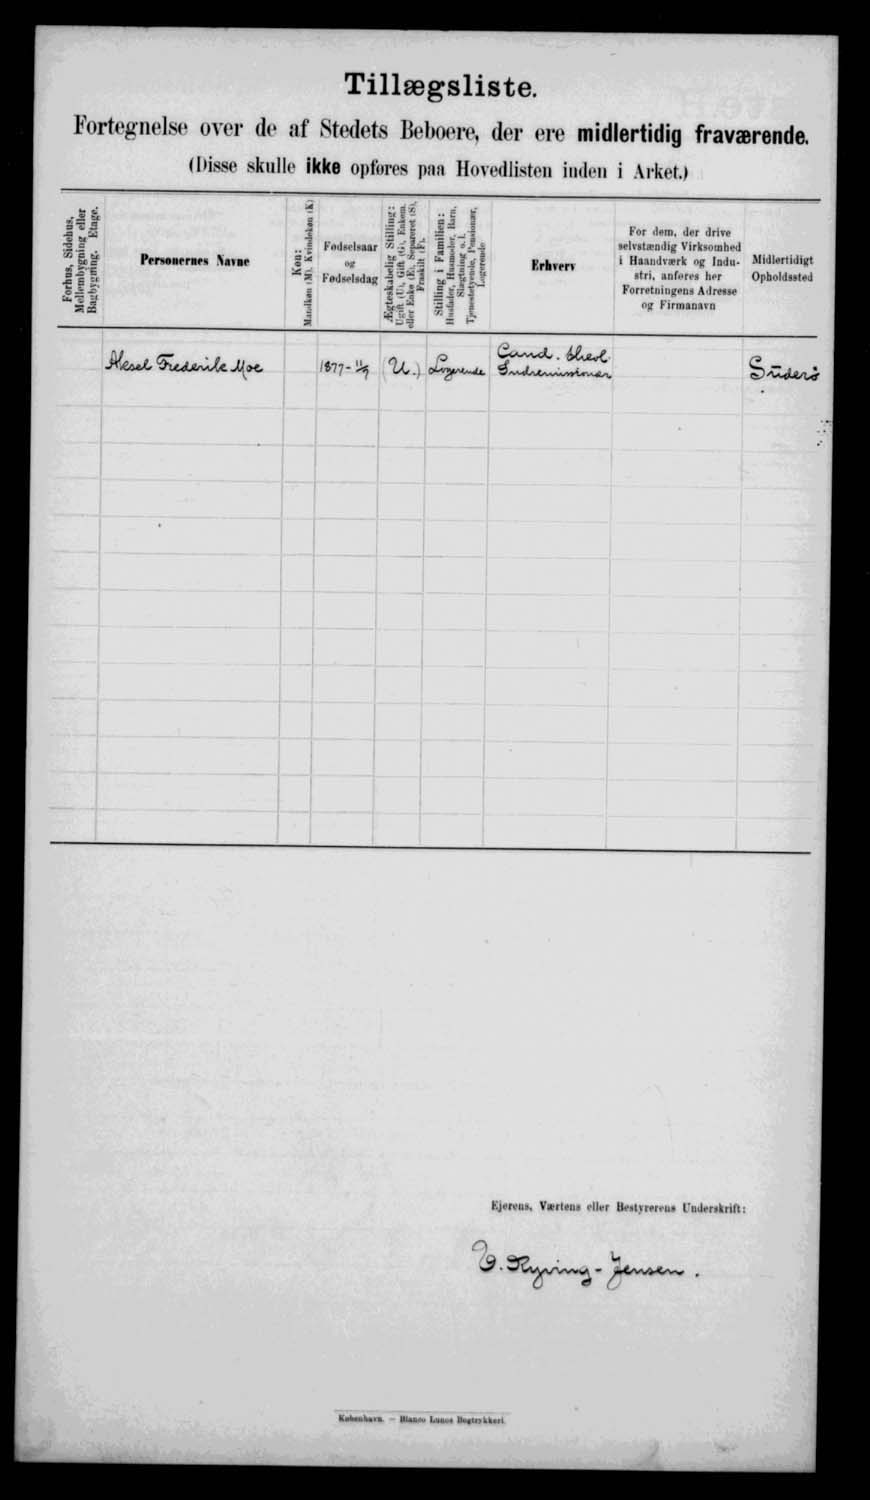 Tillægsliste.
Fortegnelse over de af Stedets Beboere, der ere midlertidig fraværende.
(Disse skulle ikke opføres paa Hovedlisten inden i Arket.)
Forhus, Sidehus,
Mellembygning eller
Bagbygning. Etage.
Personernes Navne
Køn:
Mandkøn (M), Kvindekøn (K)
Fødselsaar
og
Fødselsdag
Ægteskabelig Stilling:
Ugift (U), Gift (G), Enkem.
eller Enke (E), Separeret (S),
Fraskilt (F).
Stilling i Familien:
Husfader, Husmoder, Barn,
Slægtning o. l.
Tjenestetyende, Pensionær,
Logerende
Erhverv
For dem, der drive
selvstændig Virksomhed
i Haandværk og Indu-
stri, anføres her
Forretningens Adresse
og Firmanavn
Midlertidigt
Opholdssted
Aksel Frederik Moe
1877-11/9
(U.)
Logerende
Cand. theol.
Indremissionær
Suderø
Ejerens, Værtens eller Bestyrerens Underskrift:
Ryving-Jensen.
København. — Bianco Lunos Bogtrykkeri.